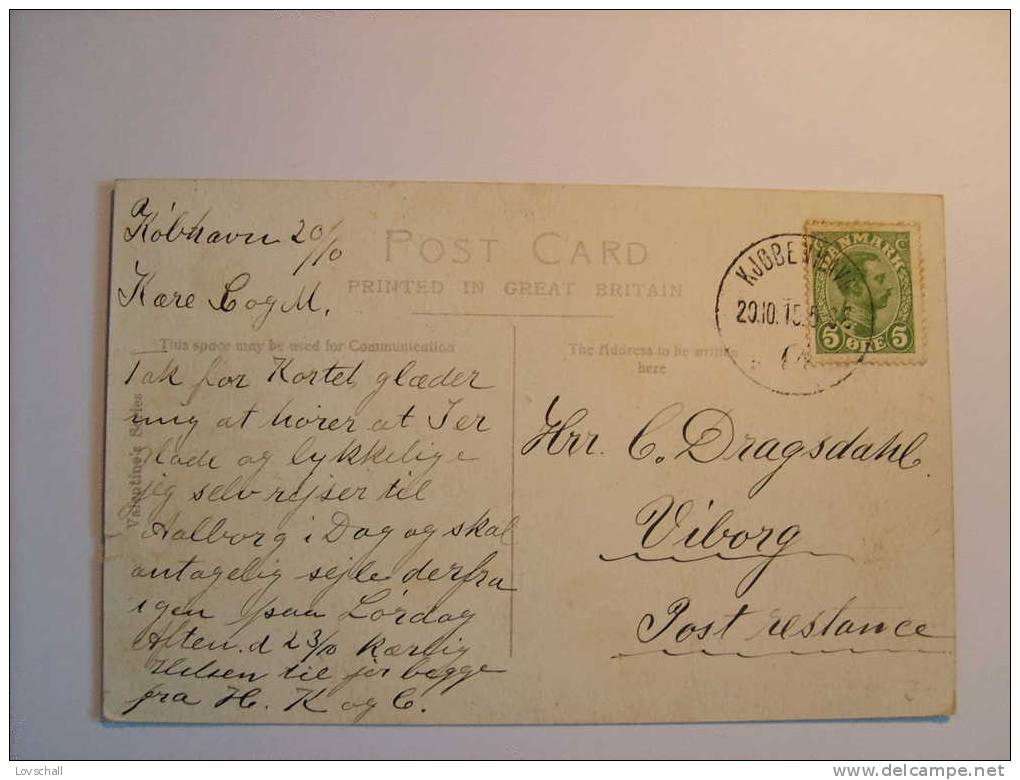 Købhavn 20/10
Kære C og M.
POST CARD
PRINTED IN GREAT BRITAIN
This space may be used for Communication
The Address to be written
here
Valentine's Series
Tak for Kortet, glæder
mig at hører at I er
glade og lykkelige
jeg selv rejser til
Aalborg i Dag og skal
antagelig sejle derfra
igen paa Lørdag
Aften d 23/10 kærlig
Hilsen til jer begge
fra H. K og C.
KJØBENHAVN
20.10.15.
DANMARK
5 ØRE 5
Hrr. C. Dragsdahl.
Viborg
Post restance
Lovschall
delcampe.net